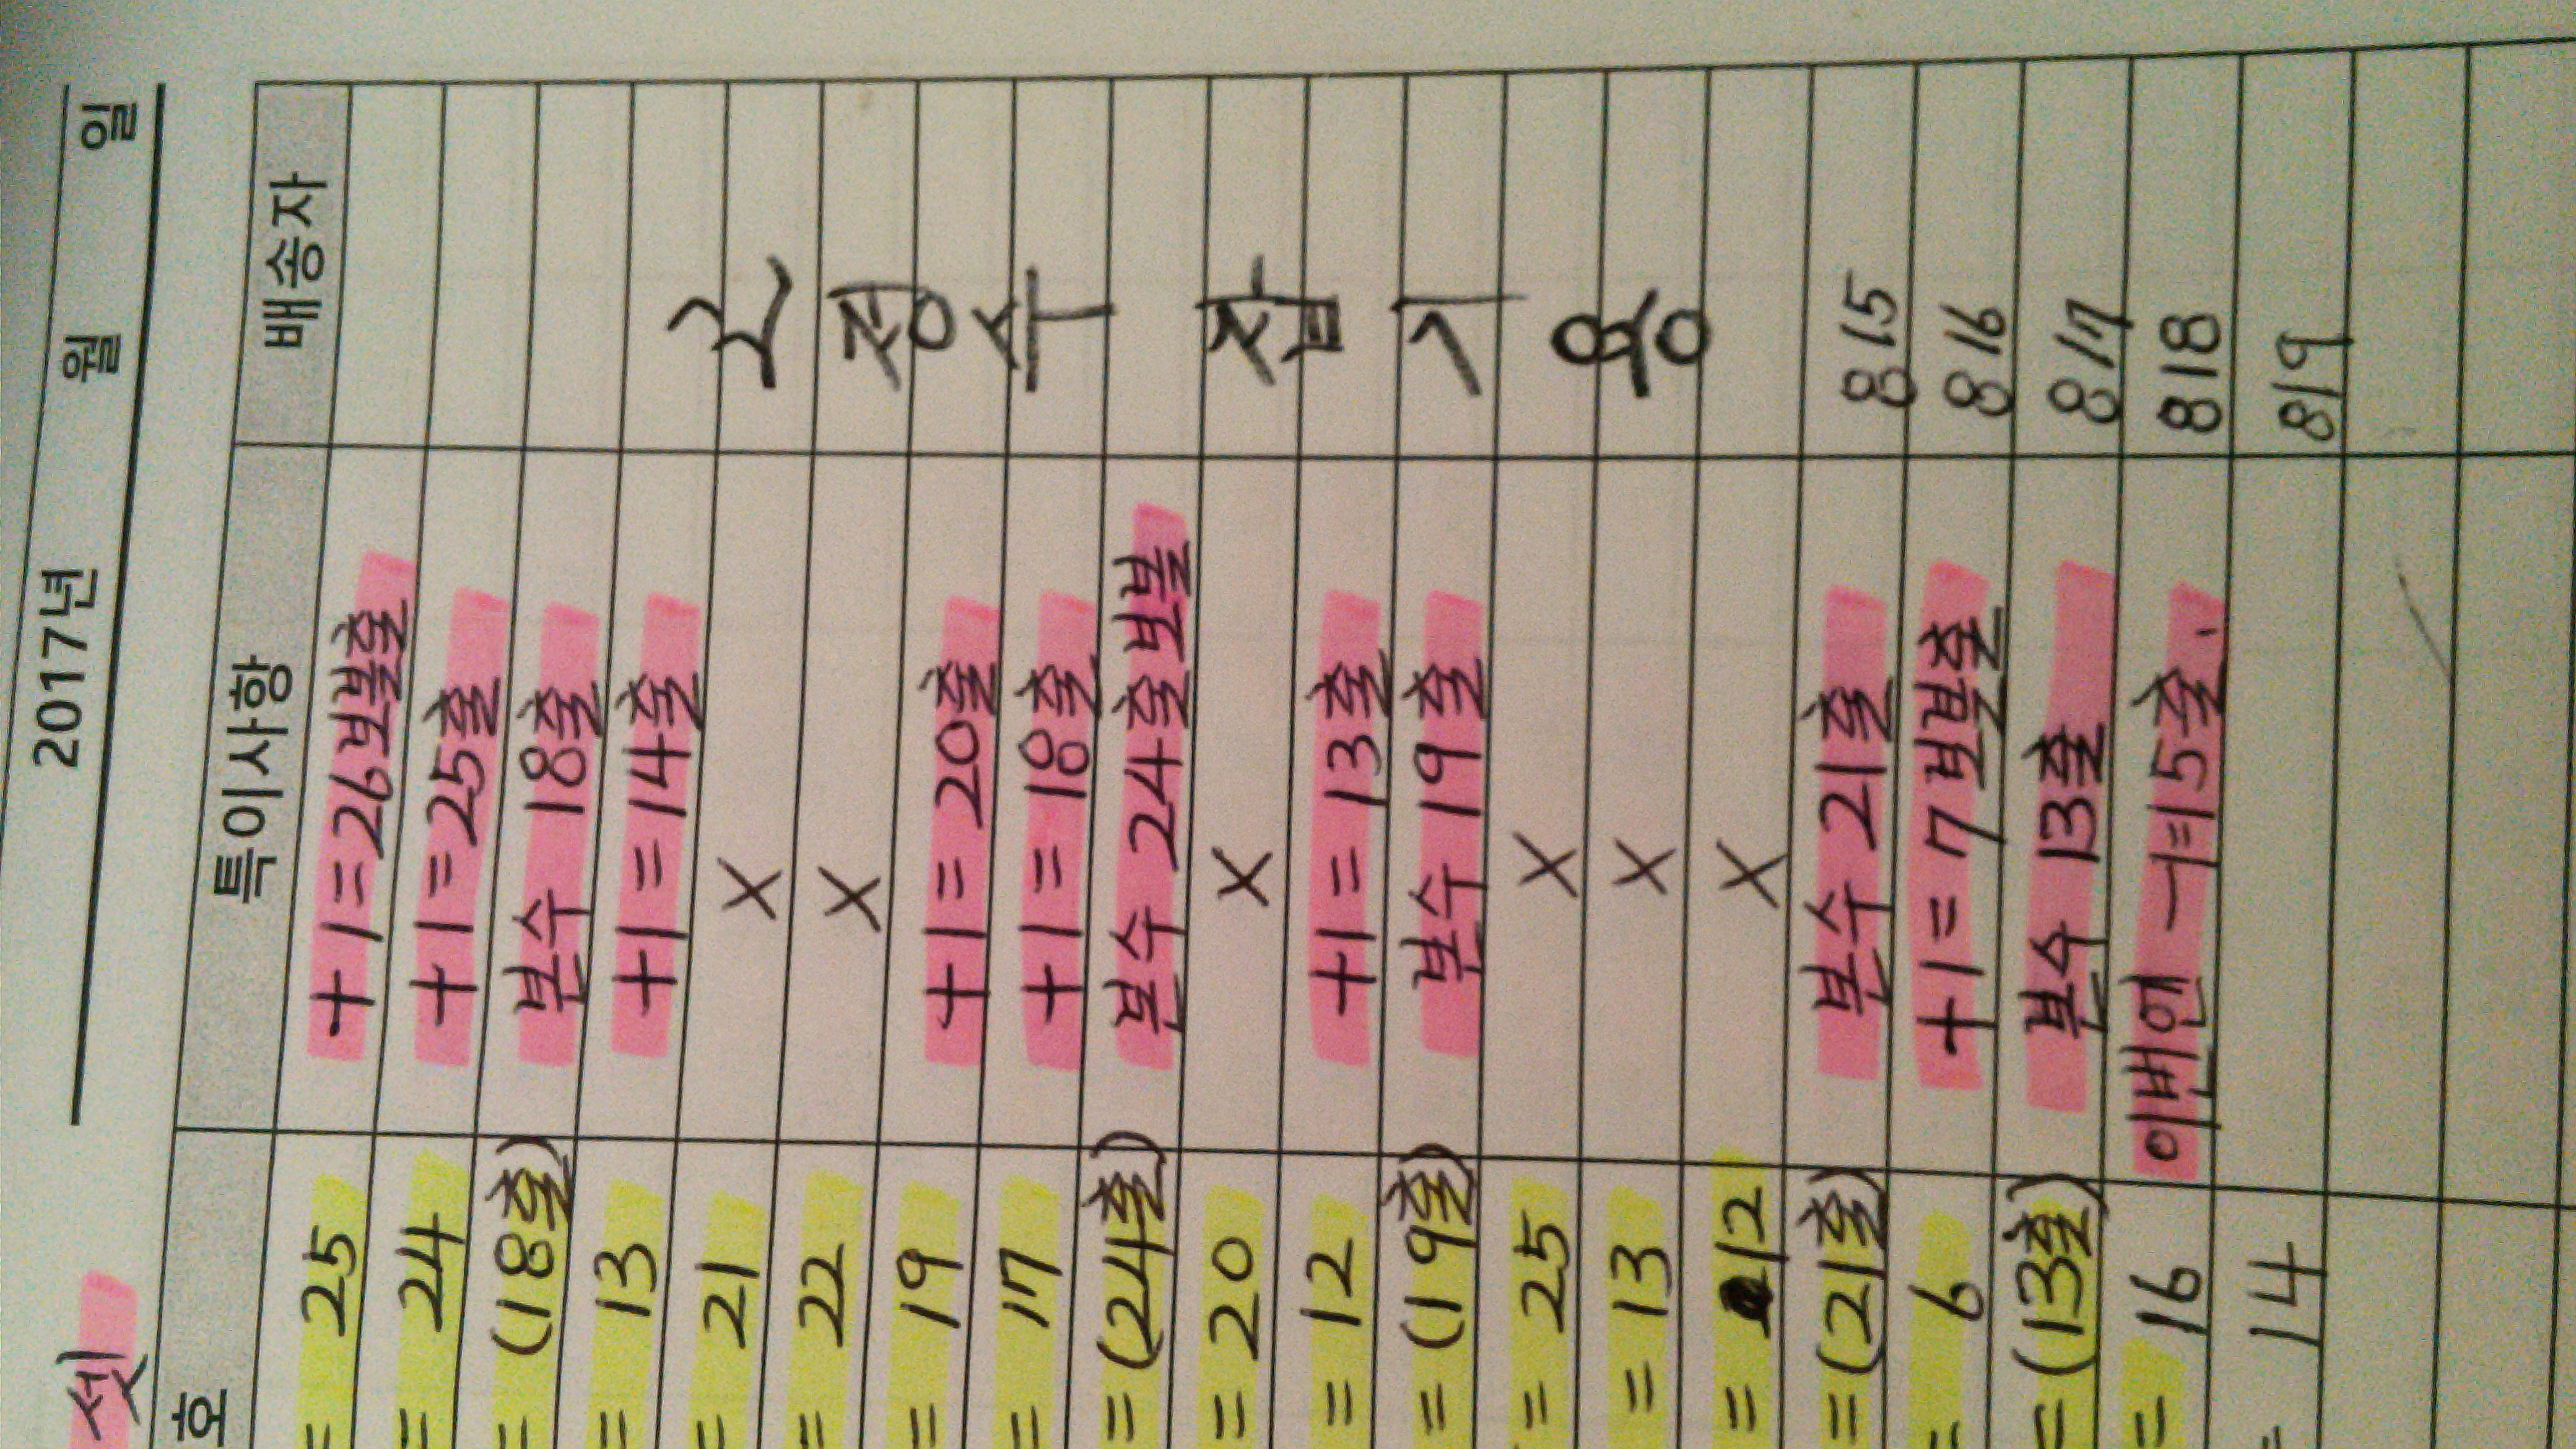 2017년 월 일
셋
호 특이사항 배송자
= 25 +1=26보볼출
= 24 +1=25출
= (18출) 보수 18출
= 13 +1=14출
= 21 X
= 22 X
= 19 +1=20출
= 17 +1=18출
= (24출) 보수 24출 보볼
= 20 X
= 12 +1=13출
= (19출) 보수 19출
= 25 X
= 13 X
= 12 X
= (21출) 보수 21출 815
= 6 +1=7 보볼출 816
= (13출) 보수 13출 817
= 16 이번엔 -1=15출. 818
= 14 819
고정수 잡기용